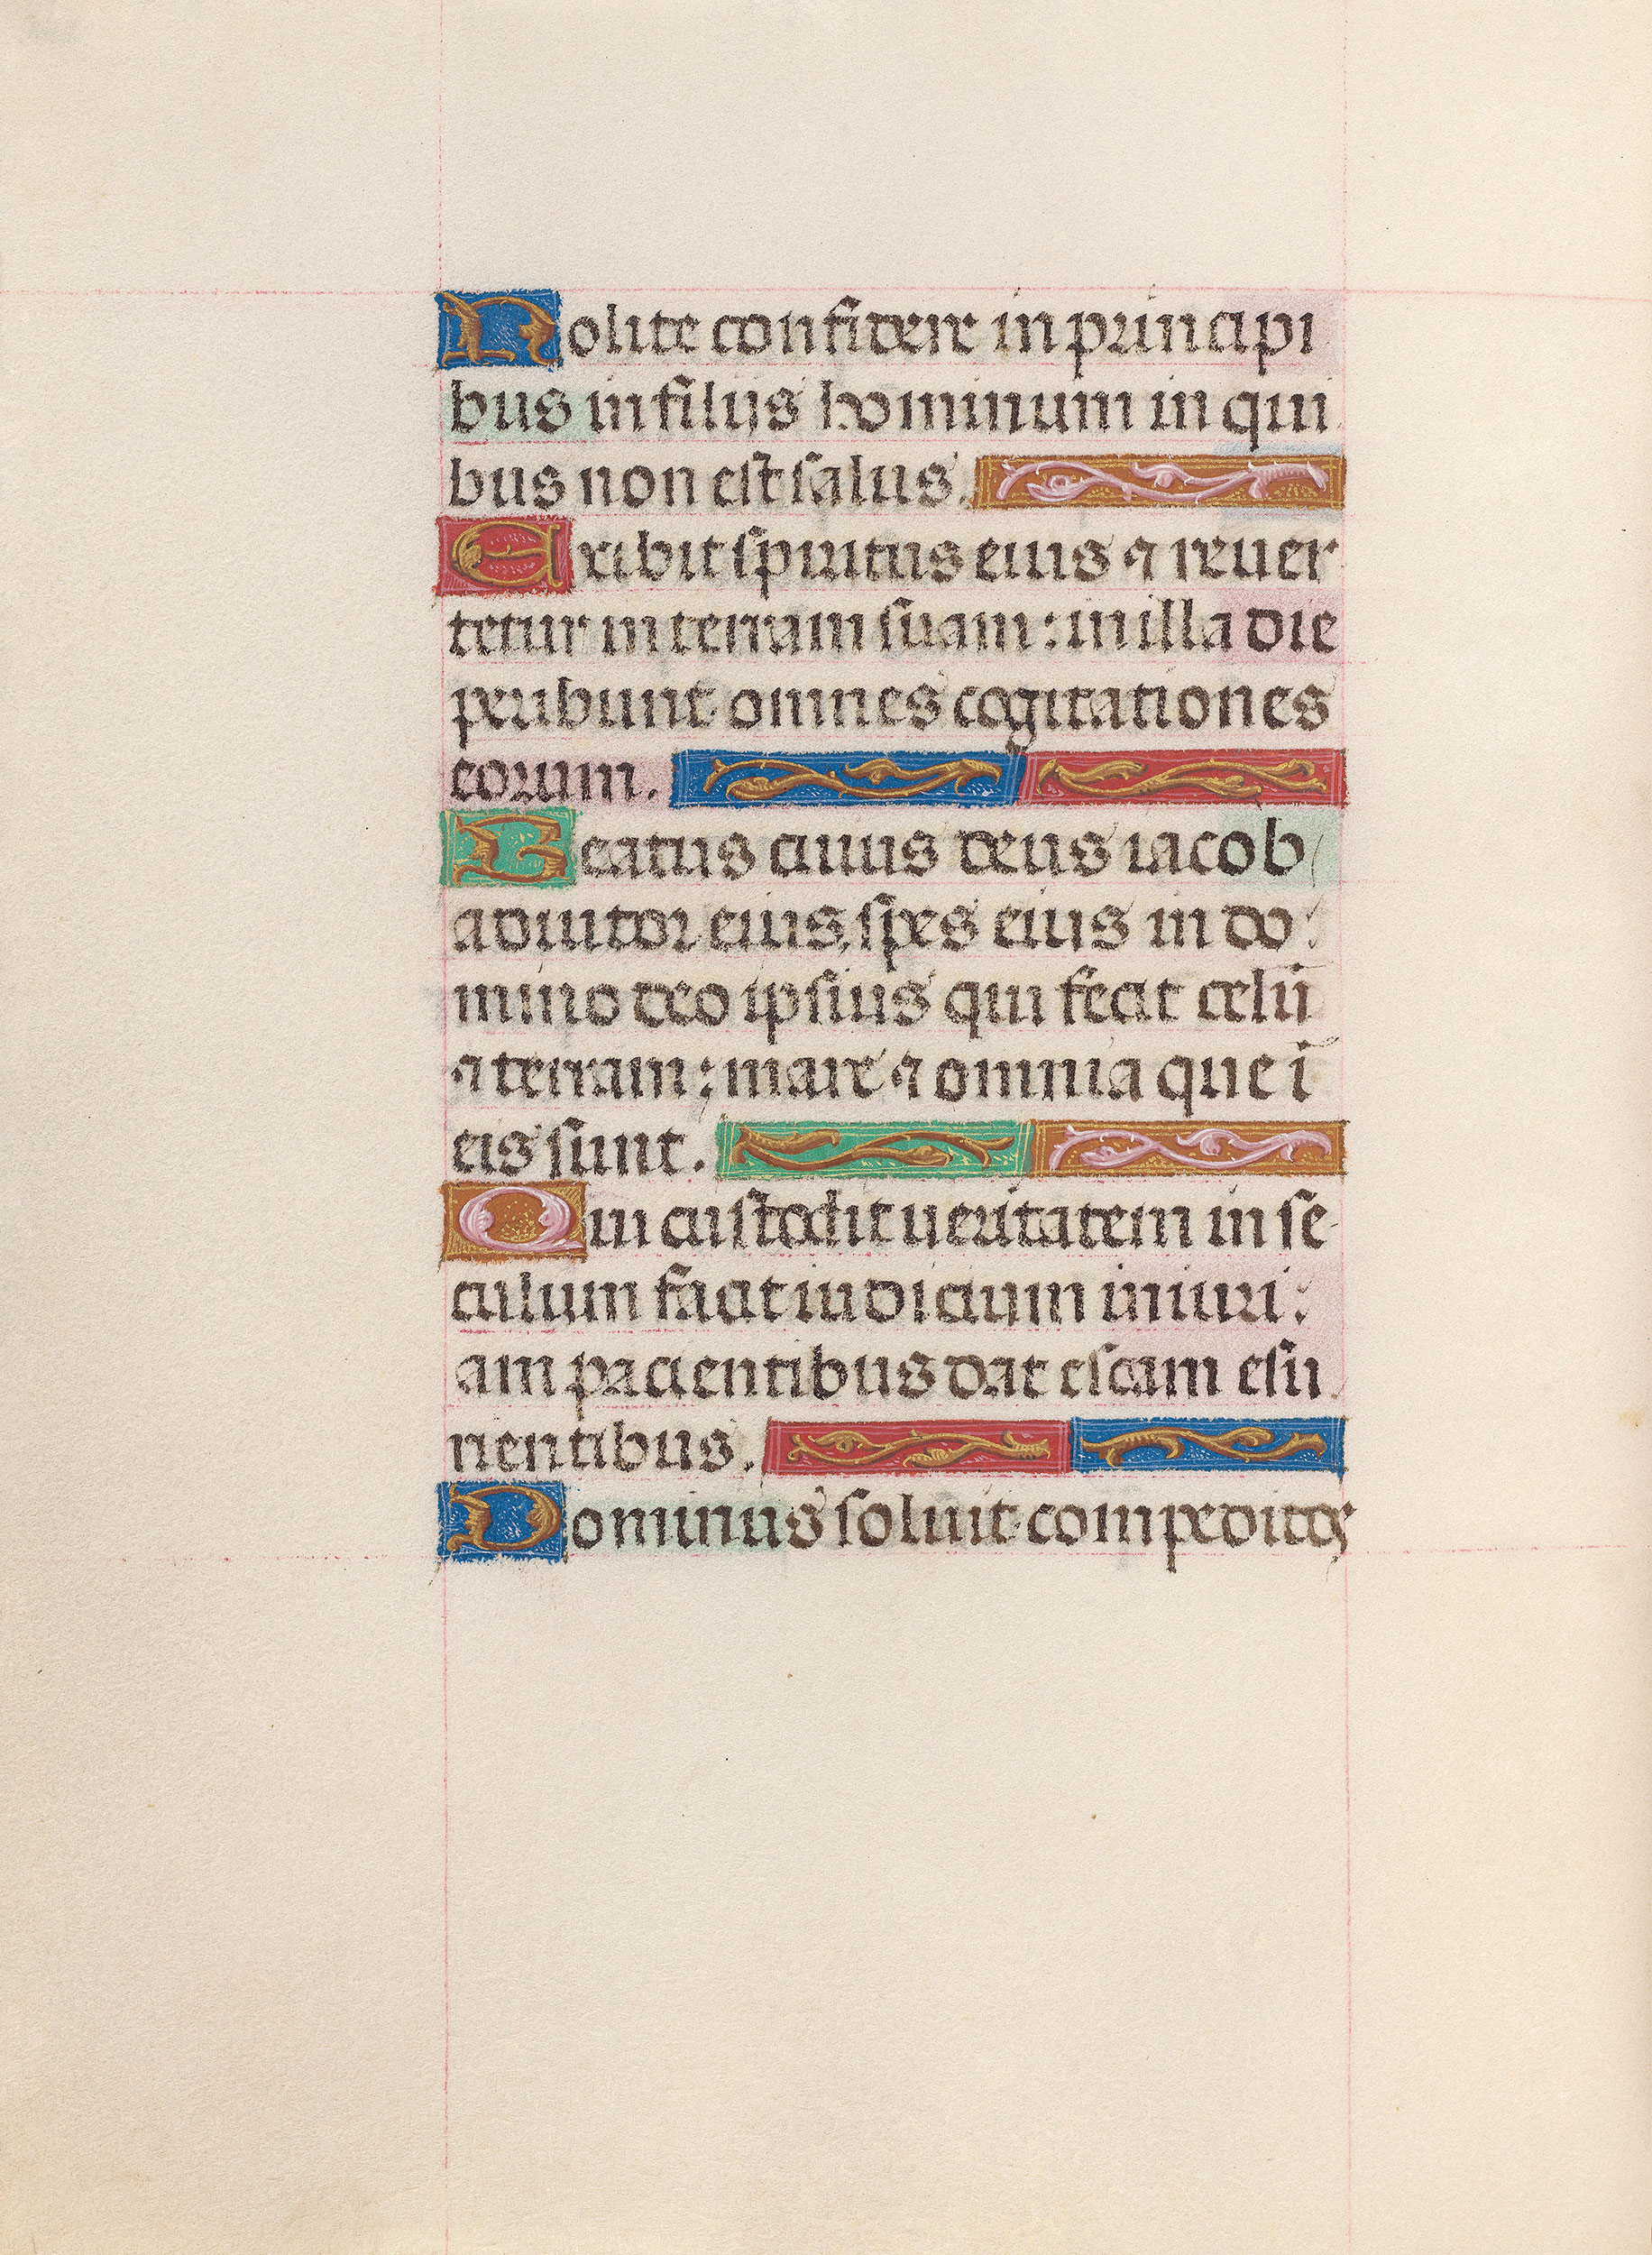 Nolite confidere in principi
bus in filijs hominum in qui
bus non est salus.
Exibit spiritus eius ⁊ reuer
tetur in terram suam: in illa die
peribunt omnes cogitationes
eorum.
Beatus cuius deus iacob
adiutor eius, spes eius in do
mino deo ipsius qui fecit celū
⁊ terram: mare ⁊ omnia que ī
eis sunt.
Qui custodit ueritatem in se
culum facit iudicium iniuri
am pacientibus dat escam esu
rientibus.
Dominus soluit compeditos